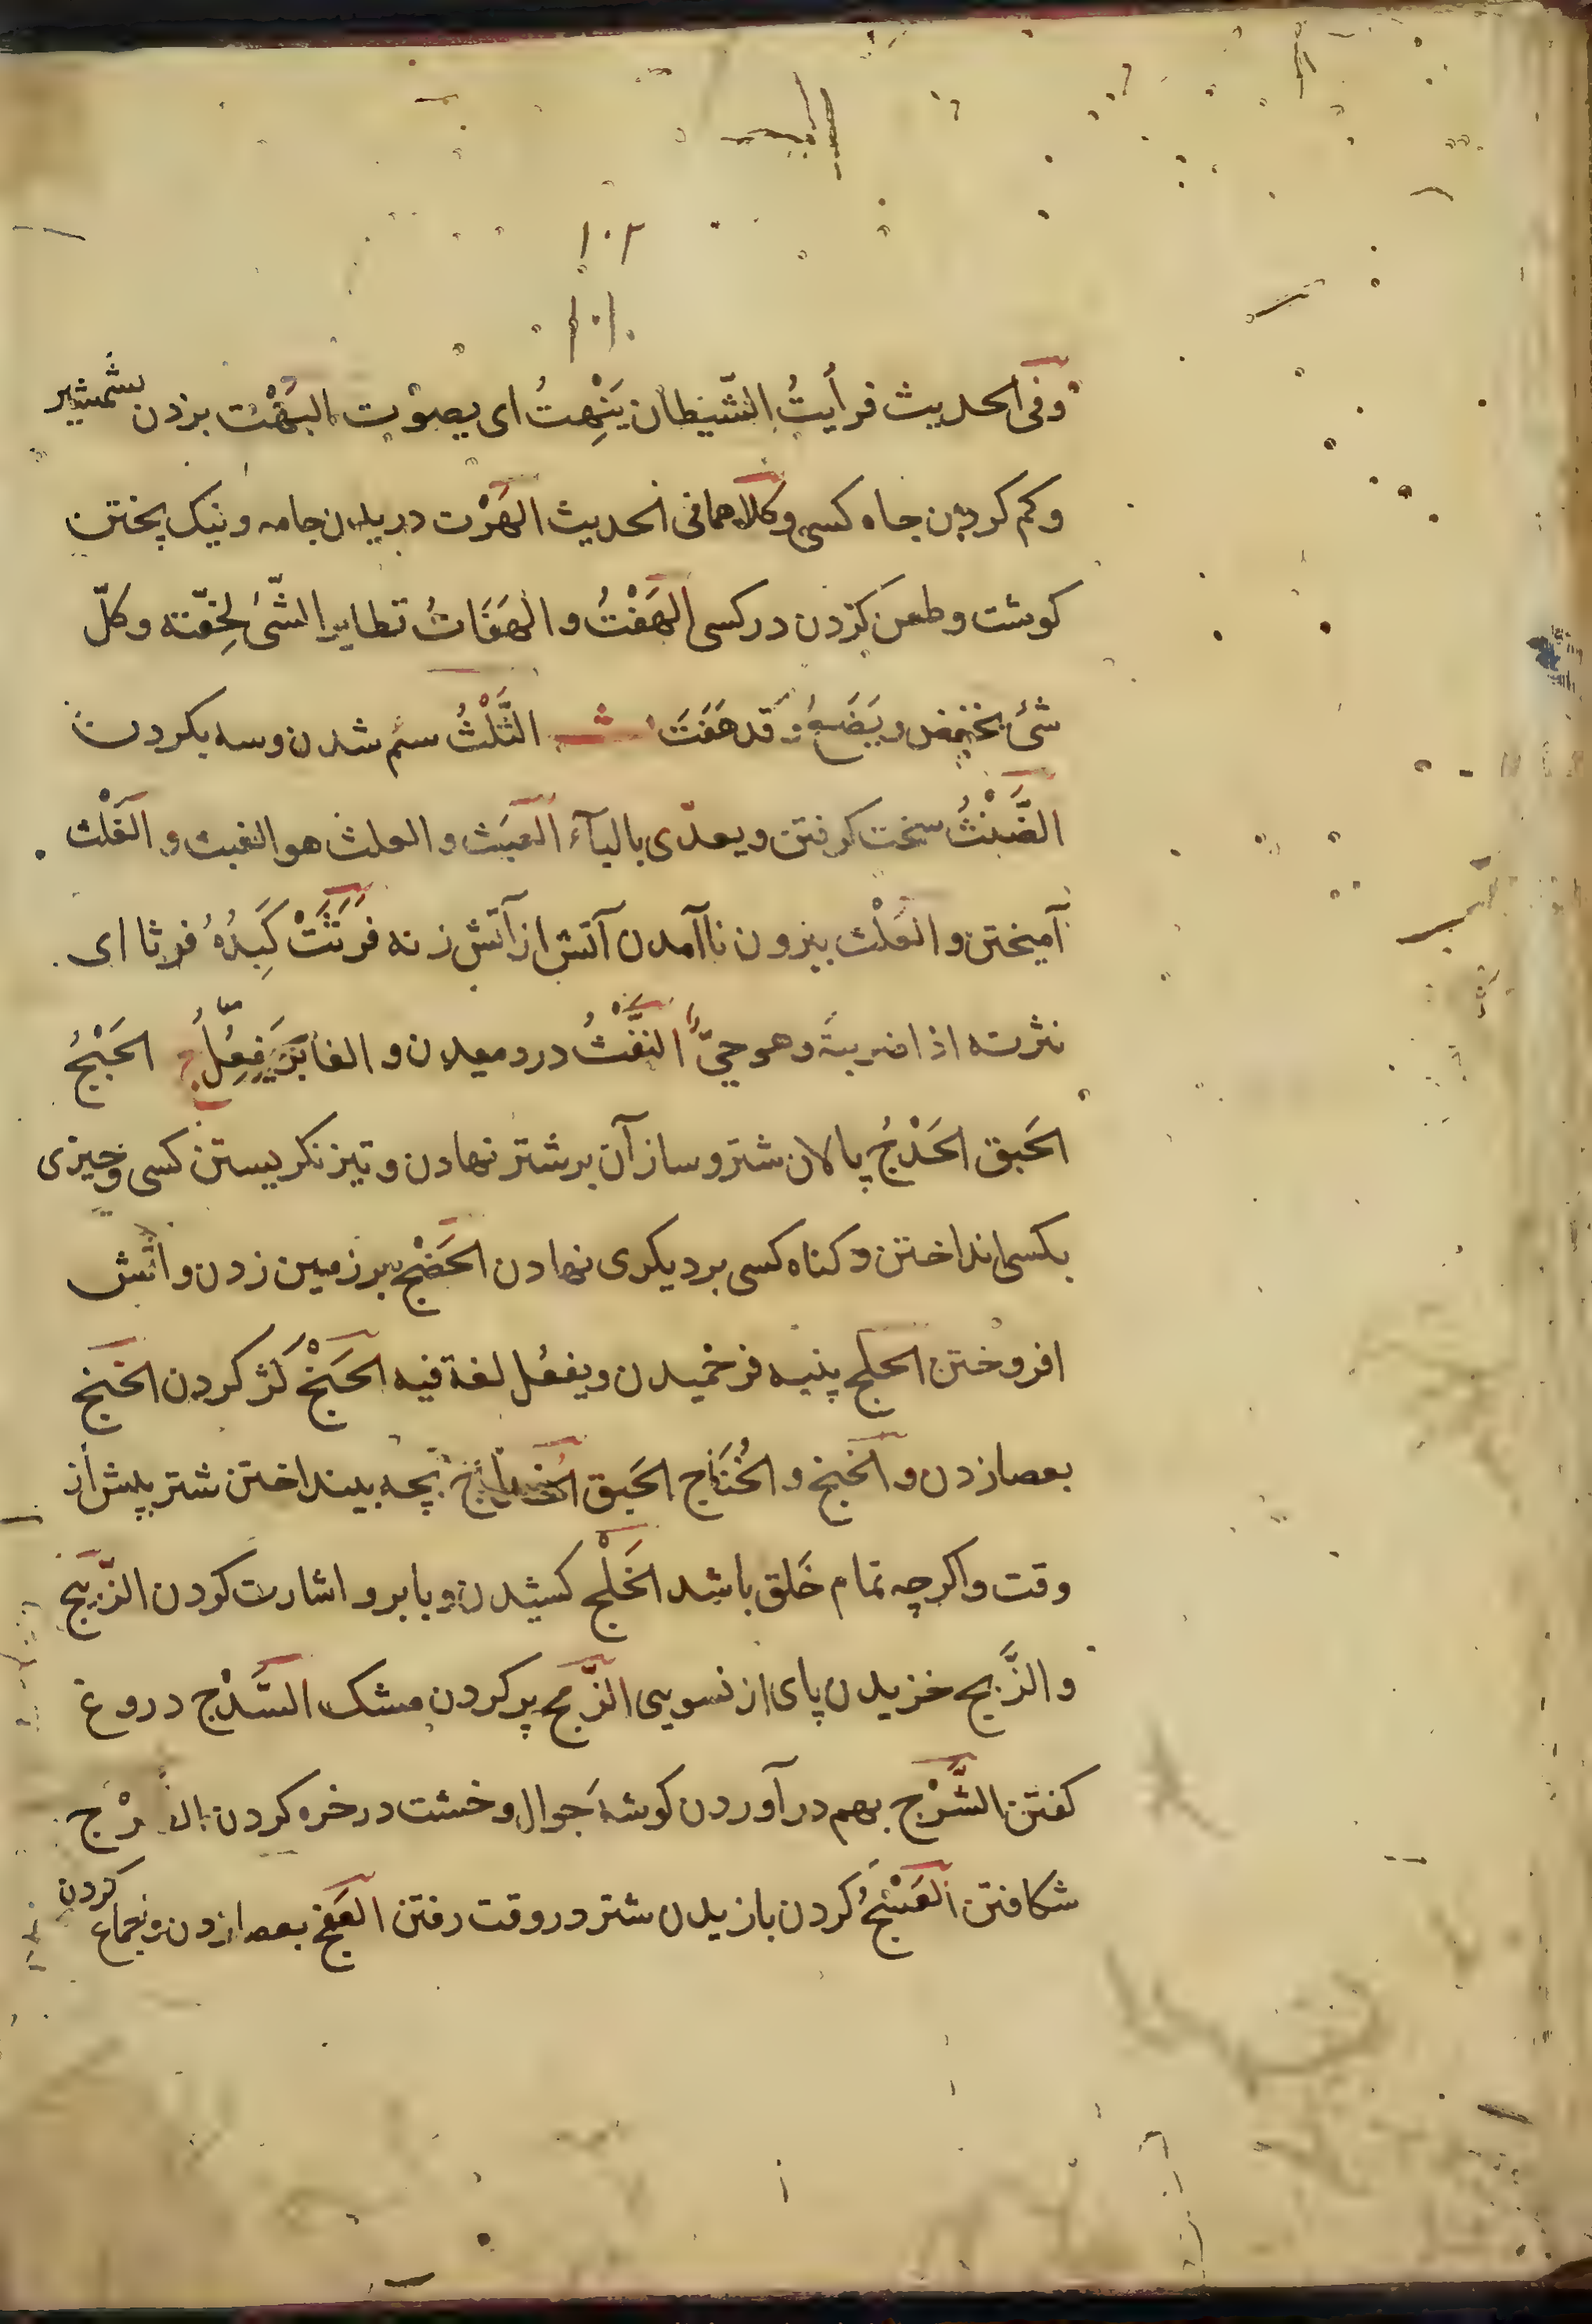 ١٠٢
١٠١
وفی الحدیث فرأیتُ الشّیطان یَنْهِتُ ای یصوّت الهَبْت بزدن بشمشیر
وکم کردن جاه کسی وکلاهما فی الحدیث الهَرْت دریدن جامه ونیک پختن
کوشت وطعن کردن در کسی الهَفْتُ والهَفَاتُ تطایر الشّئ لِخِفّته وکلّ
شئ یخفض ویَضَعُ وقد هَفَتَ ث الثَّلْثُ سئم شدن وسه یکردن
الضَّبْثُ سخت کرفتن ویعدّی بالبآء العَبَث والعلث هو الغبث والغَلْث
آمیختن والعَلْث بیرون ناآمدن آتش از آتش زنه فَرَثَتْ کَبِدُهُ فرثا ای
نثرته اذا ضربتَه وهو حیٌّ النَّفْثُ دردمیدن والغابر یَفعِلُ ج الحَبْجُ
الحَبق الحَدْجُ پالان شتر وساز آن بر شتر نهادن وتیز نکریستن کسی وچیزی
بکسی انداختن وکناه کسی بر دیکری نهادن الحَضْج بر زمین زدن واتش
افروختن الحلج پنبه فرخمیدن ویفعُل لغة فیه الحَنْج کژ کردن الخبج
بعصا زدن والخبج والخُبَاج الحَبق الخداج بچه بینداختن شتر پیش از
وقت واکرچه تمام خَلق باشد الخَلْج کشیدن وبابرو اشارت کردن الزّلج
والزَّلیج خزیدن پای از نسویی الزّمج پر کردن مشک السَّدْج دروغ
کفتن الشَّرْج بهم درآوردن کوشهٔ جوال وخشت در خره کردن
شکافتن العَسْجُ کردن بازیدن شتر در وقت رفتن العَفج بعصا زدن وجماع کردن